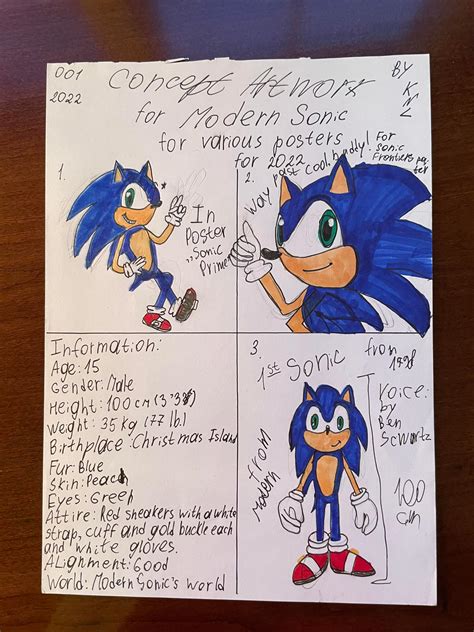 001
2022
Concept Artworx
for Modern Sonic
for various posters
for 2022
BY
K
M
L
1.
In
Poster
„Sonic
Prime
2.
Way past cool, buddy!
For
Sonic
Frontiers
Information:
Age: 15
Gender: Male
Height: 100 cm (3'3")
Weight: 35 kg (77 lb.)
Birthplace: Christmas Island
Fur: Blue
Skin: Peach
Eyes: Green
Attire: Red sneakers with a white
strap, cuff and gold buckle each
and white gloves.
Alignment: Good
World: Modern Sonic's world
3.
1st Sonic
from
1998
from
modern
Voice:
by
Ben
Scwartz
100
cm